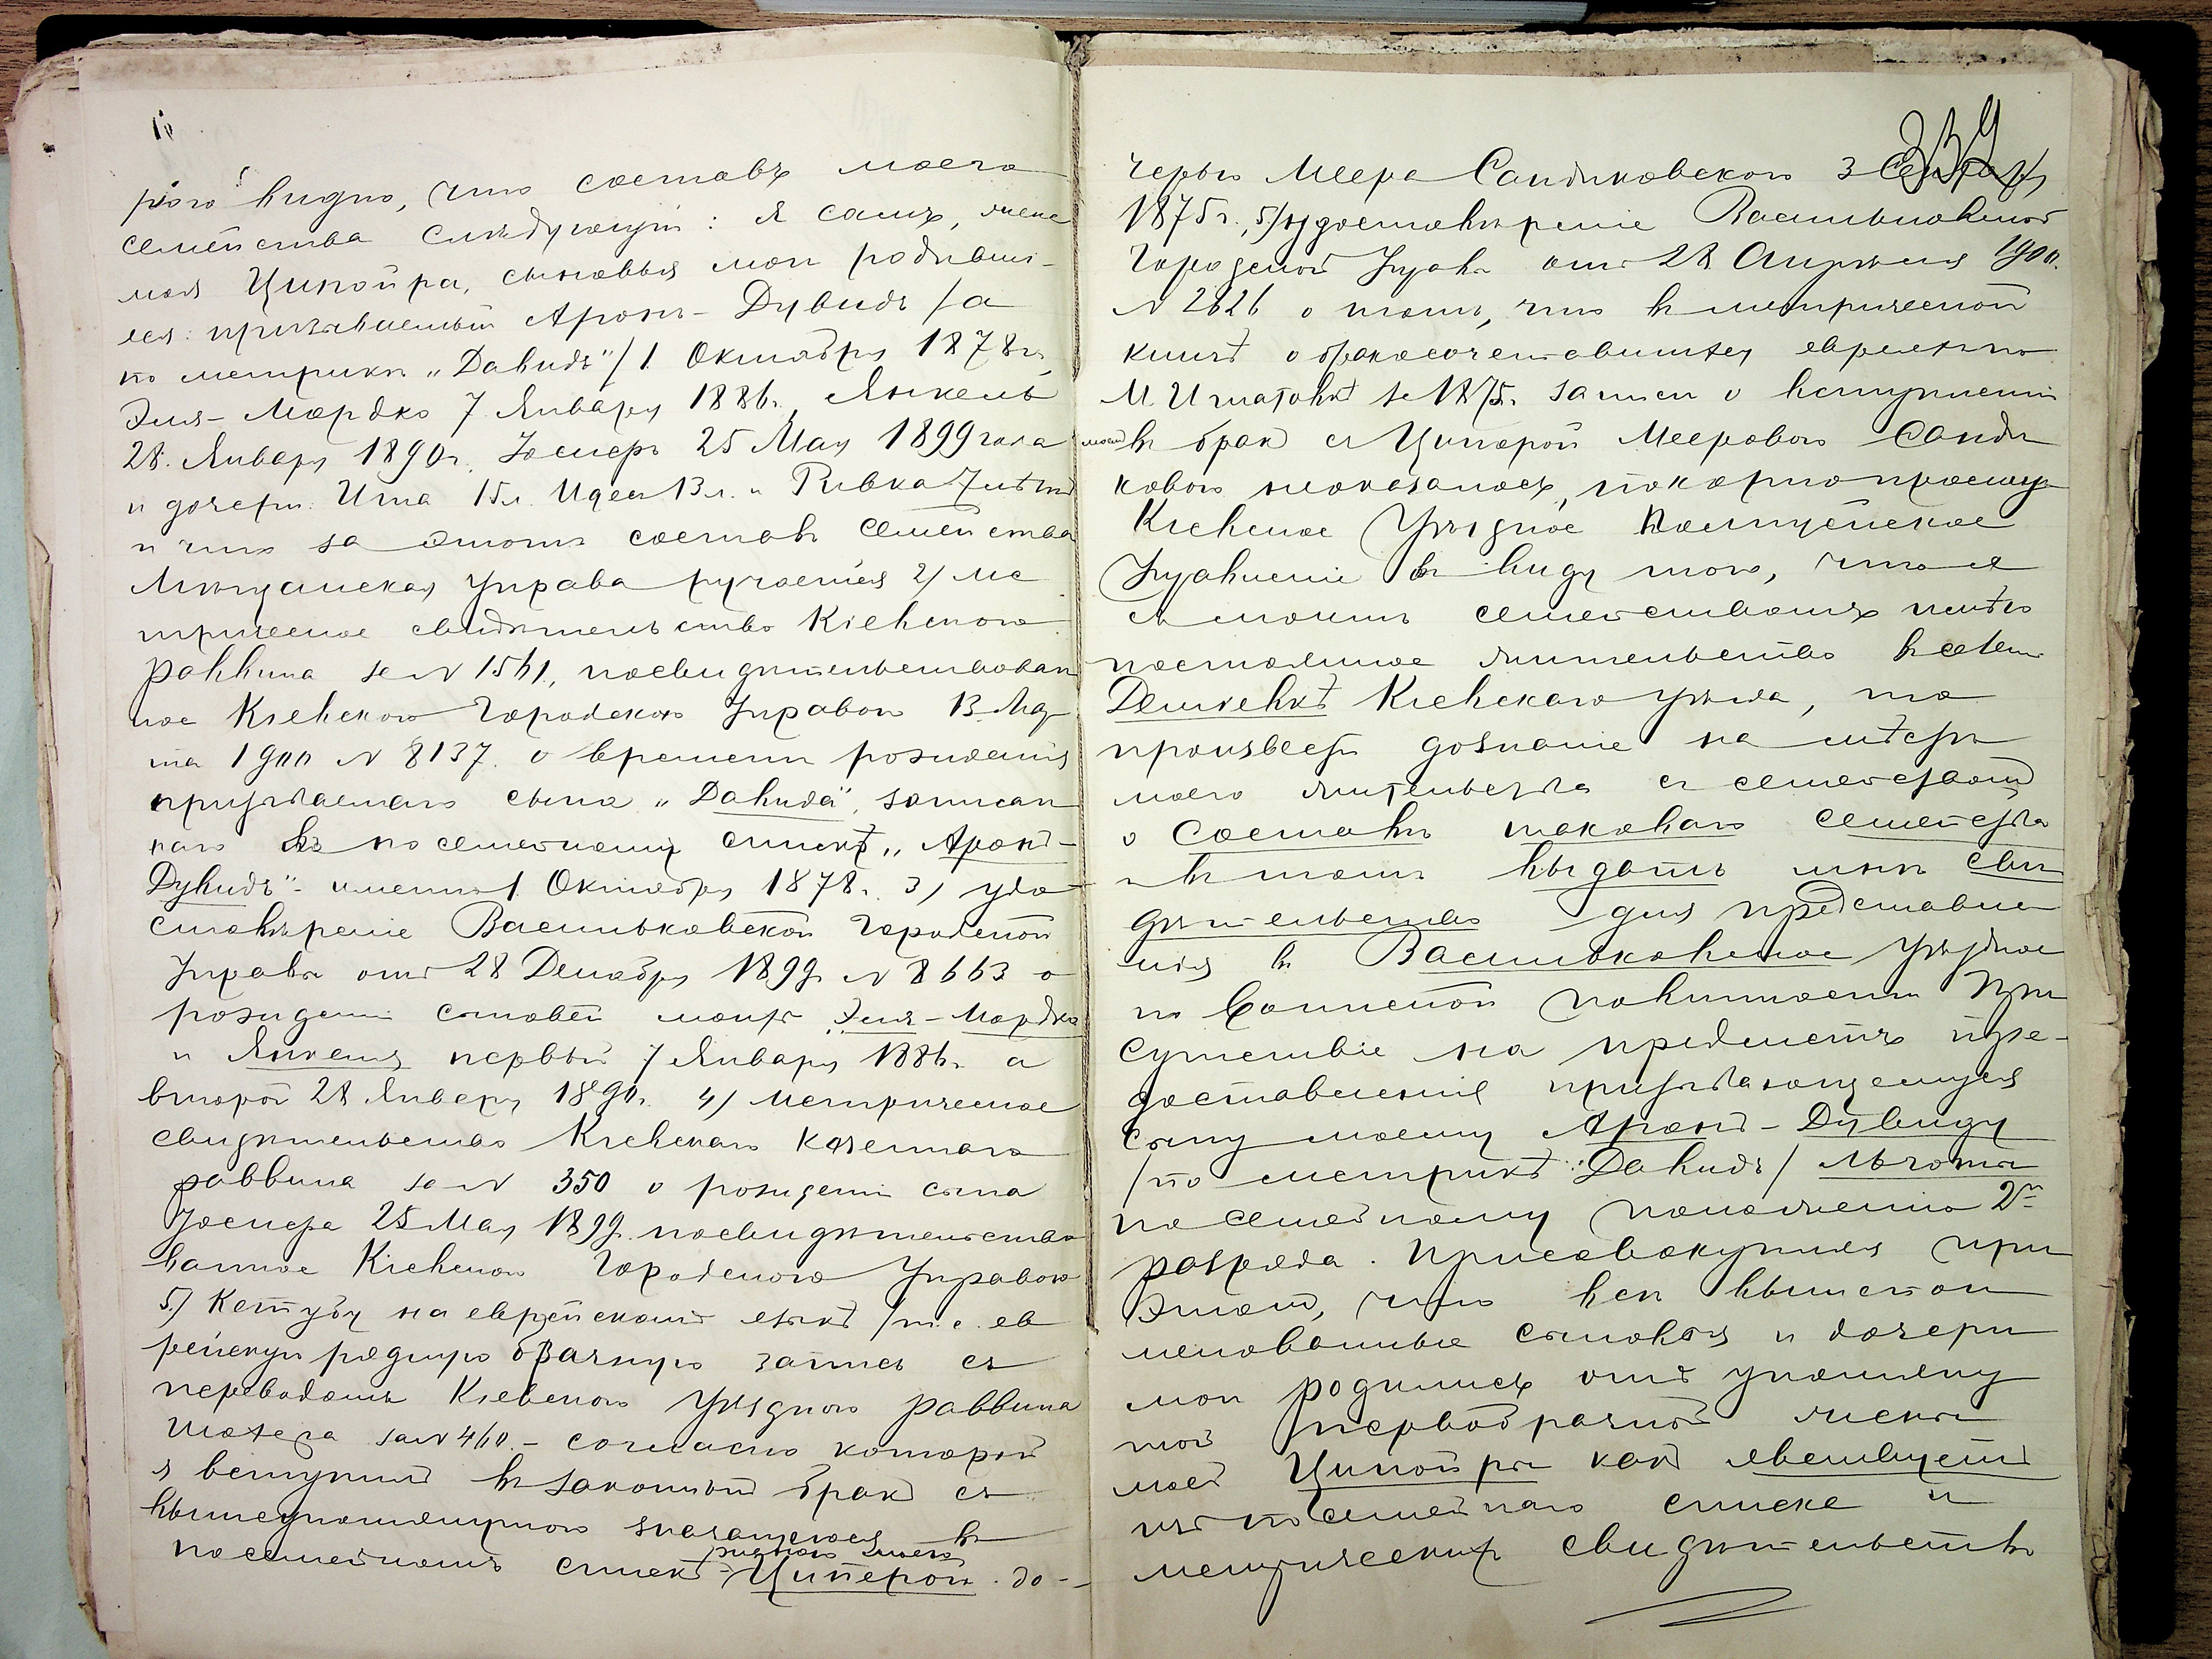 рого видно, что составъ моего
семейства слѣдующiй: я самъ, жена
моя Ципойра, сыновья мои родивші-
еся: призываемый Аронъ-Дувидъ /а
по метрикѣ „Давидъ"/ 1 Октября 1878 г.,
Эля-Мордко 7 Января 1886 г., Янкель
28 Января 1890 г. Іосифъ 25 Мая 1899 года
и дочери: Ита 15 л. Идес 13 л. и Ривка 7 лѣтъ
и что за этотъ составъ семейства
Мѣщанская Управа ручается 2/ ме
трическое свидѣтельство Кіевского
раввина за N 1561, посвидѣтельствован
ное Кіевскою Городскою Управою 13 Мар
та 1900 N 8137. о времени рожденія
призываемаго сына „Давида", записан
наго въ посемейному списку „Аронъ-
Дувидъ" - именно 1 Октября 1878 г. 3/ удо
стовѣреніе Васильковской Городской
Управы отъ 28 Декабря 1899 N 8663 о
рожденіи сыновей моихъ Эля-Мордко
и Янкеля, первый 7 Января 1886 г. а
второй 28 Января 1890 г. 4/ Метрическое
свидѣтельство Кіевскаго казеннаго
раввина за N 350 о рожденіи сына
Іосифа 25 Мая 1899 посвидѣтельство
ванное Кіевскою Городскою Управою
5/ Кетубу на еврейскомъ языкѣ /т. е. ев
рейскую брачную запись съ
переводомъ Кіевского Уѣзднаго раввина
за N 460 - согласно которой
я вступилъ въ законный бракъ съ
вышеупомянутою значущеюся въ
посемейномъ спискѣ Циперою до-
черью Меера Сандиковского 3
1875 г., 5/ удостовѣреніе Васильковской
Городской Управы отъ 28 Апрѣля 1900
N 2626 о томъ, что въ метрической
книгѣ о бракосочетавшихся евреяхъ по
М. Игнатовкѣ за 1875 г. записи о вступленіи
моемъ въ бракъ съ Ципорой Мееровою Санди
ковою не оказалось, покорно прошу
Кіевское Уѣздное Полицейское
Управленіе въ виду того, что я
съ моимъ семействомъ имѣю
постоянное жительство въ селѣ
Деміевкѣ Кіевскаго уѣзда, то
произвести дознаніе на мѣстѣ
моего жительства съ семействомъ
о составѣ таковаго семейства
и въ томъ выдать мнѣ сви
дѣтельство для представле
нія въ Васильковское уѣздное
по воинской повинности При
сутствіе на предметъ пре-
доставленія призывающемуся
сыну моему Аронъ-Дувиду
/по метрикѣ „Давидъ"/ льготы
по семейному положенію 2го
разряда. Присовокупляя при
этомъ, что всѣ вышепои
менованные сыновья и дочери
мои родились отъ упомяну
той первобрачной жены
моей Ципойры какъ явствуетъ
изъ посемейнаго списка и
метрическихъ свидѣтельствъ